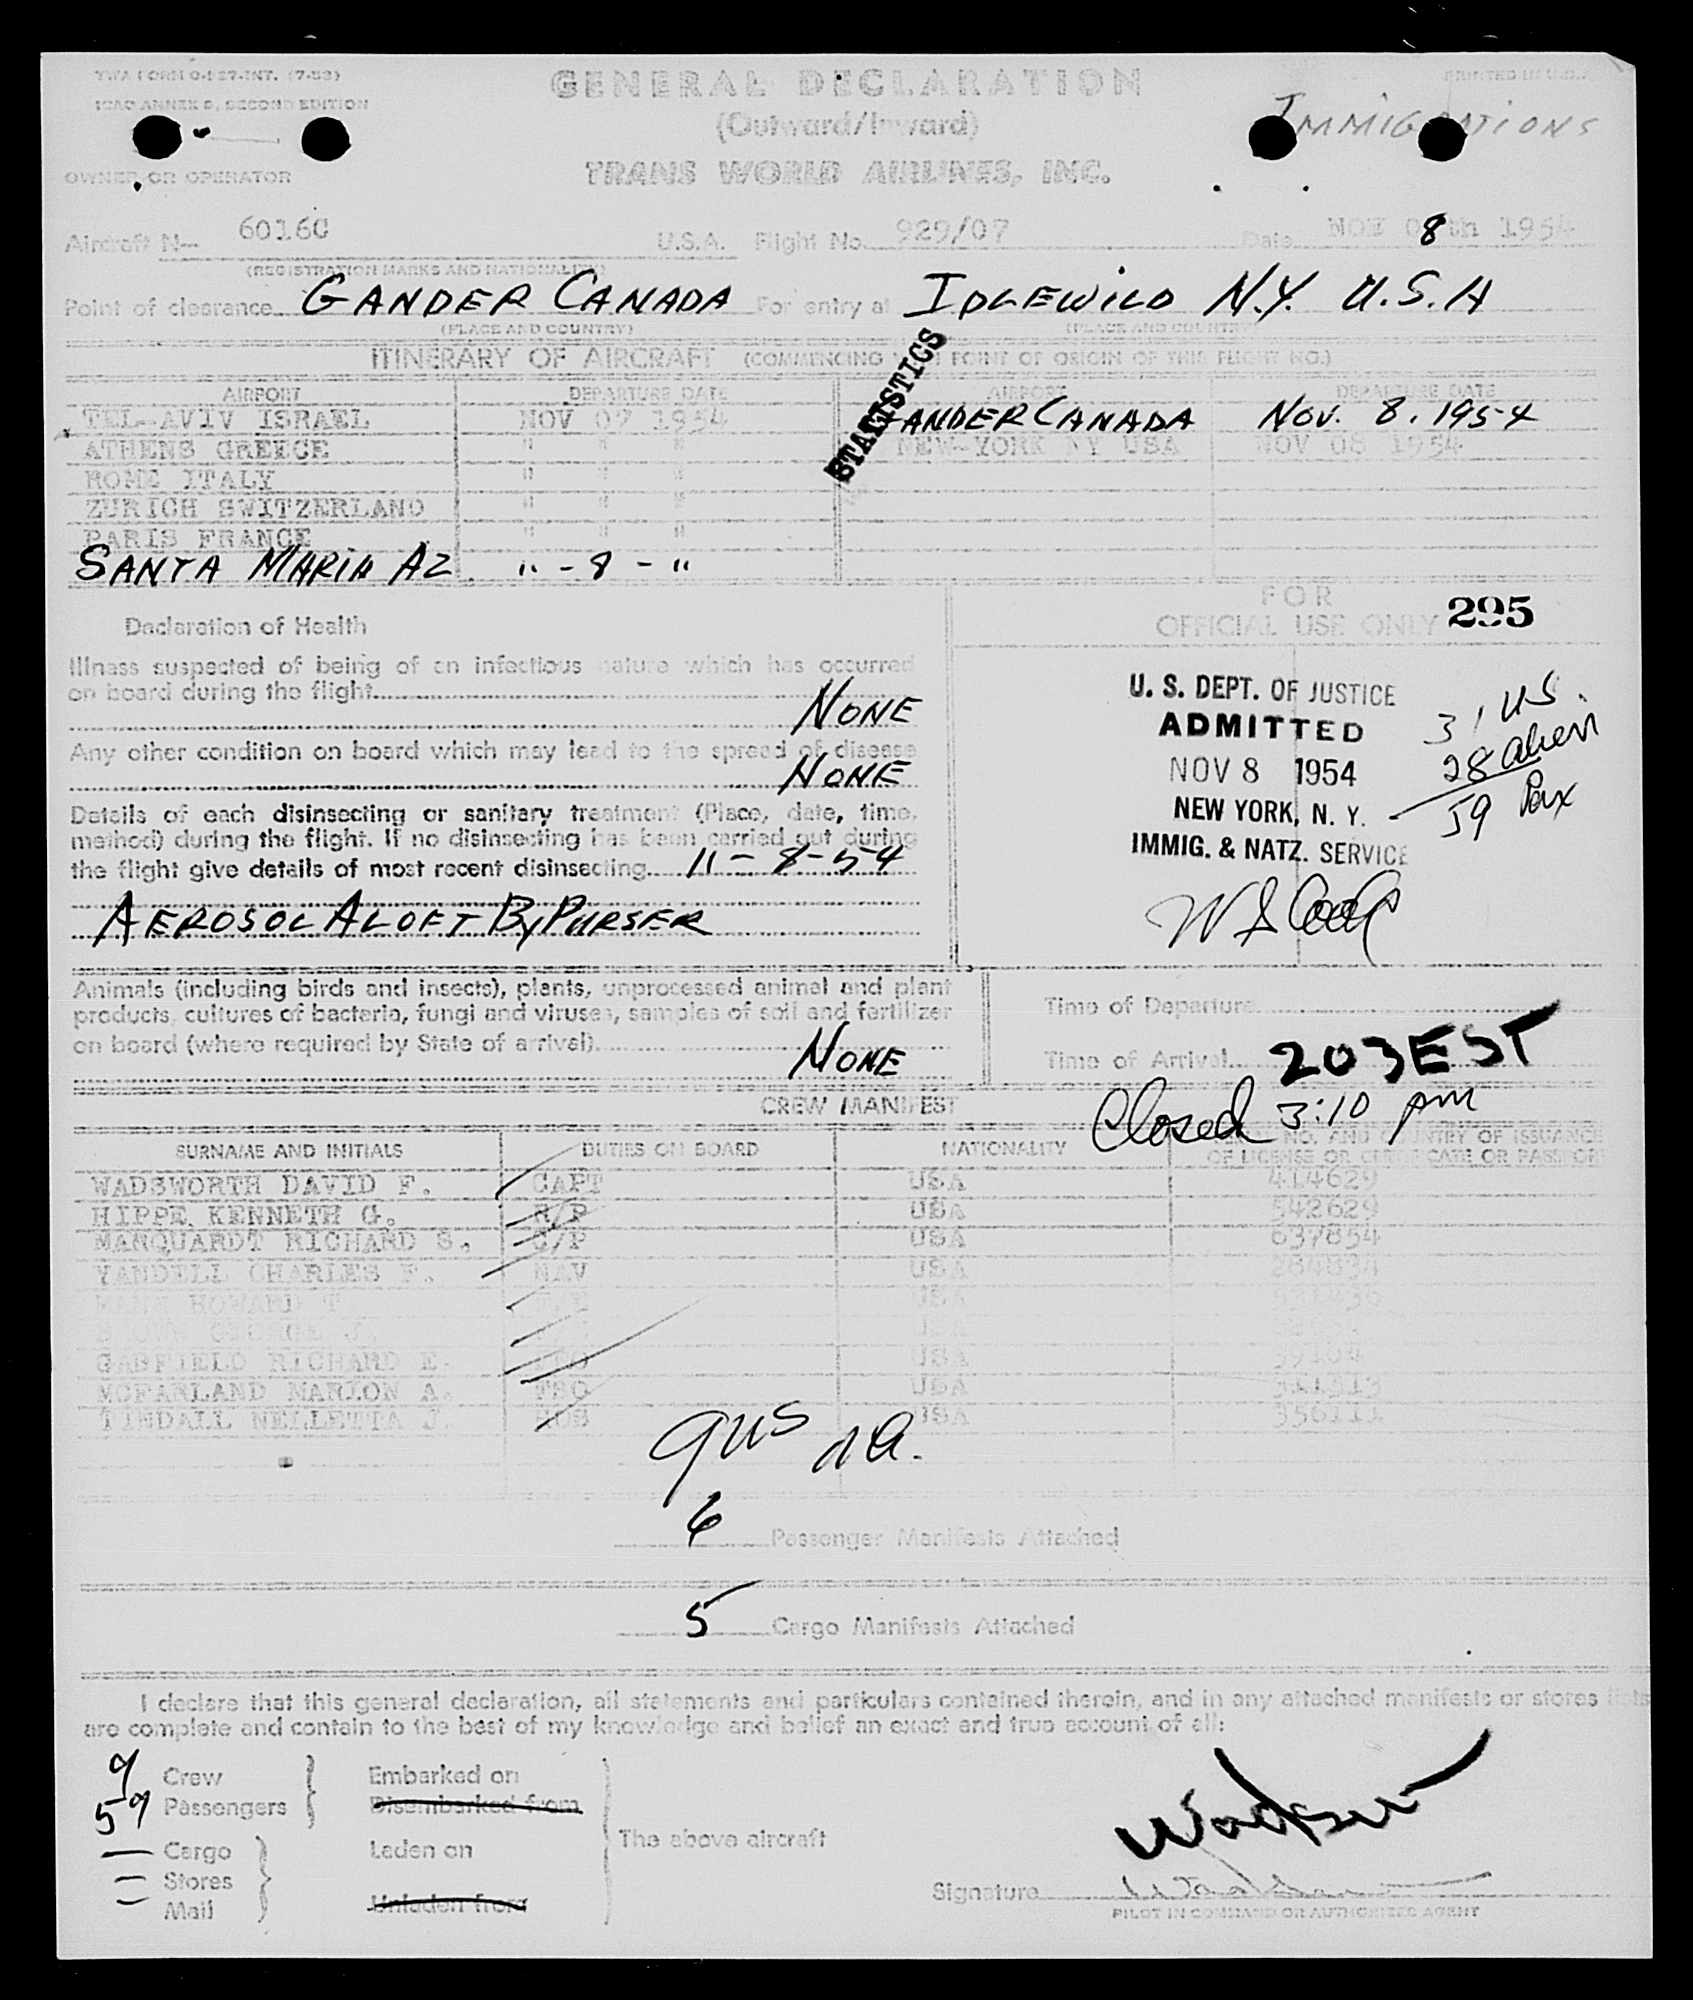 TWA FORM O-127-INT. (7-53)
ICAO ANNEX 9, SECOND EDITION
GENERAL DECLARATION
(Outward/Inward)
PRINTED IN U.S.A.
IMMIGRATIONS
OWNER OR OPERATOR
TRANS WORLD AIRLINES, INC.
Aircraft N— 6016C U.S.A. Flight No. 929/07 Date NOV 8th 1954
(REGISTRATION MARKS AND NATIONALITY)
Point of clearance GANDER CANADA For entry at IDLEWILD N.Y. U.S.A
(PLACE AND COUNTRY) (PLACE AND COUNTRY)
ITINERARY OF AIRCRAFT (COMMENCING WITH POINT OF ORIGIN OF THIS FLIGHT NO.)
STATISTICS
AIRPORT DEPARTURE DATE AIRPORT DEPARTURE DATE
TEL-AVIV ISRAEL NOV 07 1954 GANDER CANADA NOV. 8. 1954
ATHENS GREECE " " " NEW-YORK NY USA NOV 08 1954
ROME ITALY " " "
ZURICH SWITZERLAND " " "
PARIS FRANCE " " "
SANTA MARIA AZ " - 8 - "
FOR
OFFICIAL USE ONLY 295
Declaration of Health
Illness suspected of being of an infectious nature which has occurred
on board during the flight
NONE
Any other condition on board which may lead to the spread of disease
NONE
Details of each disinsecting or sanitary treatment (Place, date, time,
method) during the flight. If no disinsecting has been carried out during
the flight give details of most recent disinsecting 11-8-54
AEROSOL ALOFT BY PURSER
U. S. DEPT. OF JUSTICE
ADMITTED
NOV 8 1954
NEW YORK, N. Y.
IMMIG. & NATZ. SERVICE
31 US.
28 alien
59 Pax
Animals (including birds and insects), plants, unprocessed animal and plant
products, cultures of bacteria, fungi and viruses, samples of soil and fertilizer
on board (where required by State of arrival)
NONE
Time of Departure
Time of Arrival 203 EST
Closed 3:10 pm
CREW MANIFEST
SURNAME AND INITIALS DUTIES ON BOARD NATIONALITY NO. AND COUNTRY OF ISSUANCE
OF LICENSE OR CERTIFICATE OR PASSPORT
WADSWORTH DAVID F. CAPT USA 414629
HIPPE KENNETH G. R/P USA 542629
MANQUARDT RICHARD S. C/P USA 637854
YANDELL CHARLES F. NAV USA
HOWARD T USA
GEORGE J. USA
GARFIELD RICHARD E. USA
MCFARLAND MARION A. USA
TINDALL NELLETTA J. HOS USA 356111
9 US
6 Passenger Manifests Attached
5 Cargo Manifests Attached
I declare that this general declaration, all statements and particulars contained therein, and in any attached manifests or stores lists
are complete and contain to the best of my knowledge and belief an exact and true account of all:
9 Crew
59 Passengers
— Cargo
— Stores
— Mail
Embarked on
Disembarked from
Laden on
Unladen from
The above aircraft
Signature
PILOT IN COMMAND OR AUTHORIZED AGENT